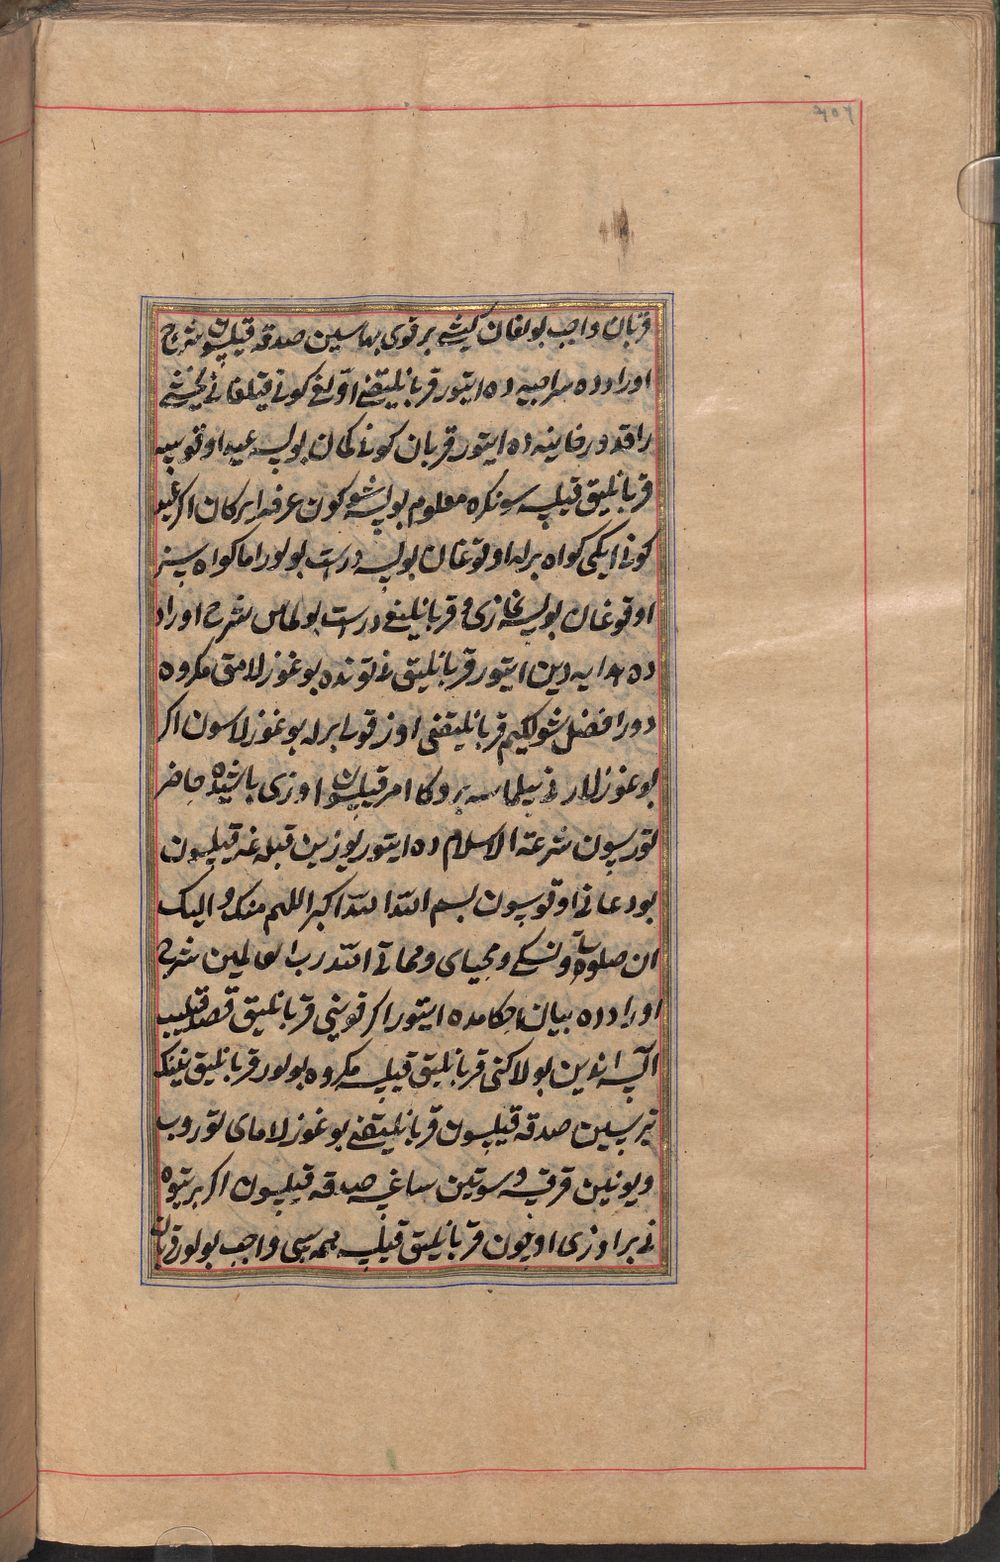 قربان واجب بولغان کیشی بر قوی بهاسین صدقه قیلسون شرح
اوراد ده سراجیه ده ایتور قربانلیقنی اوّلغی کونی قیلغانی یخشی
راقدور خانیه ده ایتور قربان کونی کمان بولسه عید اوقوسه
قربانلیق قیلسه سونکره معلوم بولسه شو کون عرفه ایرکان اکر عید
کونی ایکی کواه برله اوقوغان بولسه درست بولور اما کواه سیز
اوقوغان بولسه نمازی و قربانلیغی درست بولماس شرح اوراد
ده هدایه دین ایتور قربانلیق نی تونده بوغوزلامق مکروه
دور افضل شولکیم قربانلیقنی اوز قولی برله بوغوزلاسون اکر
بوغوزلارنی بیلماسه بروکا امر قیلسون اوزی باشیده حاضر
تورسون شرعة الاسلام ده ایتور یوزین قبله غه قیلسون
بو دعانی اوقوسون بسم الله الله اکبر اللهم منک و الیک
ان صلوتی و نسکی و محیای و مماتی الله رب العالمین شرح
اوراد ده بیان احکامده ایتور اکر قوینی قربانلیق قصد قیلیب
آلسه اندین بولاکنی قربانلیق قیلسه مکروه بولور قربانلیق نینک
تیریسین صدقه قیلسون قربانلیقنی بوغوزلامای توروب
و یونین قرقسه و سوتین ساغسه صدقه قیلسون اکر بر تیوه
نی بر اوزی اوچون قربانلیق قیلسه همه سی واجب بولور قربان